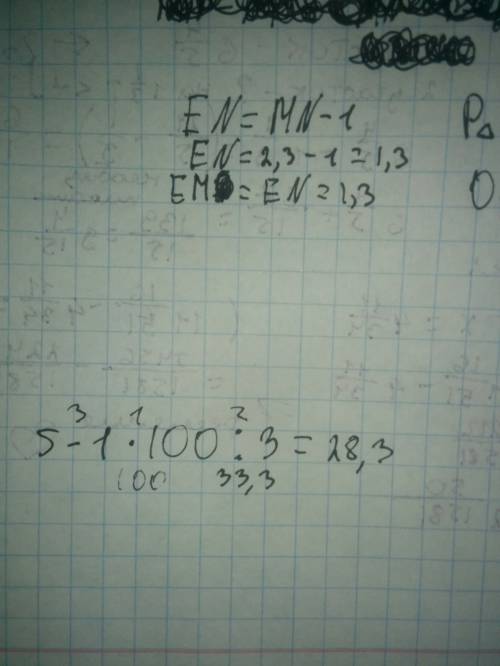 EN = MN - 1 P△
EN = 2,3 - 1 = 1,3
EM = EN = 1,3 O
3 1 2
5 - 1 · 100 : 3 = 28,3
100 33,3